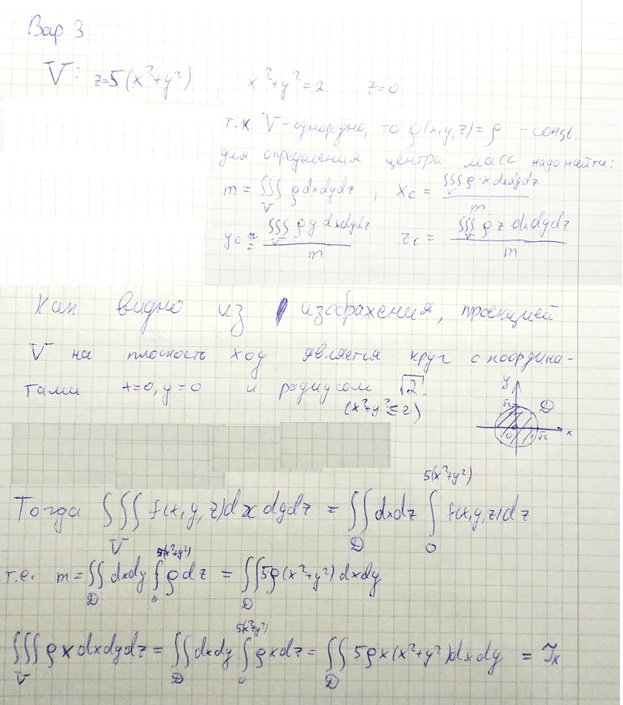 Вар 3
V: z=5(x²+y²)   x²+y²=2   z=0
т.к. V-однородно, то ρ(x,y,z)=ρ - const.
для определения центра масс надо найти:
m = ∭_V ρdxdydz ; x_c = ∭_V ρ·x dxdydz / m
y_c = ∭_V ρy dxdydz / m   z_c = ∭_V ρz dxdydz / m
Как видно из изображения, проекцией
V на плоскость xoy является круг с координа-
тами x=0, y=0 и радиусом √2.
(x²+y²≤2)
y √2 D 0 √2 x
Тогда ∭_V f(x,y,z)dxdydz = ∬_D dxdz ∫_0^{5(x²+y²)} f(x,y,z)dz
т.е. m = ∬_D dxdy ∫_0^{5(x²+y²)} ρdz = ∬_D 5ρ(x²+y²)dxdy
∭_V ρx dxdydz = ∬_D dxdy ∫_0^{5(x²+y²)} ρxdz = ∬_D 5ρx(x²+y²)dxdy = I_x